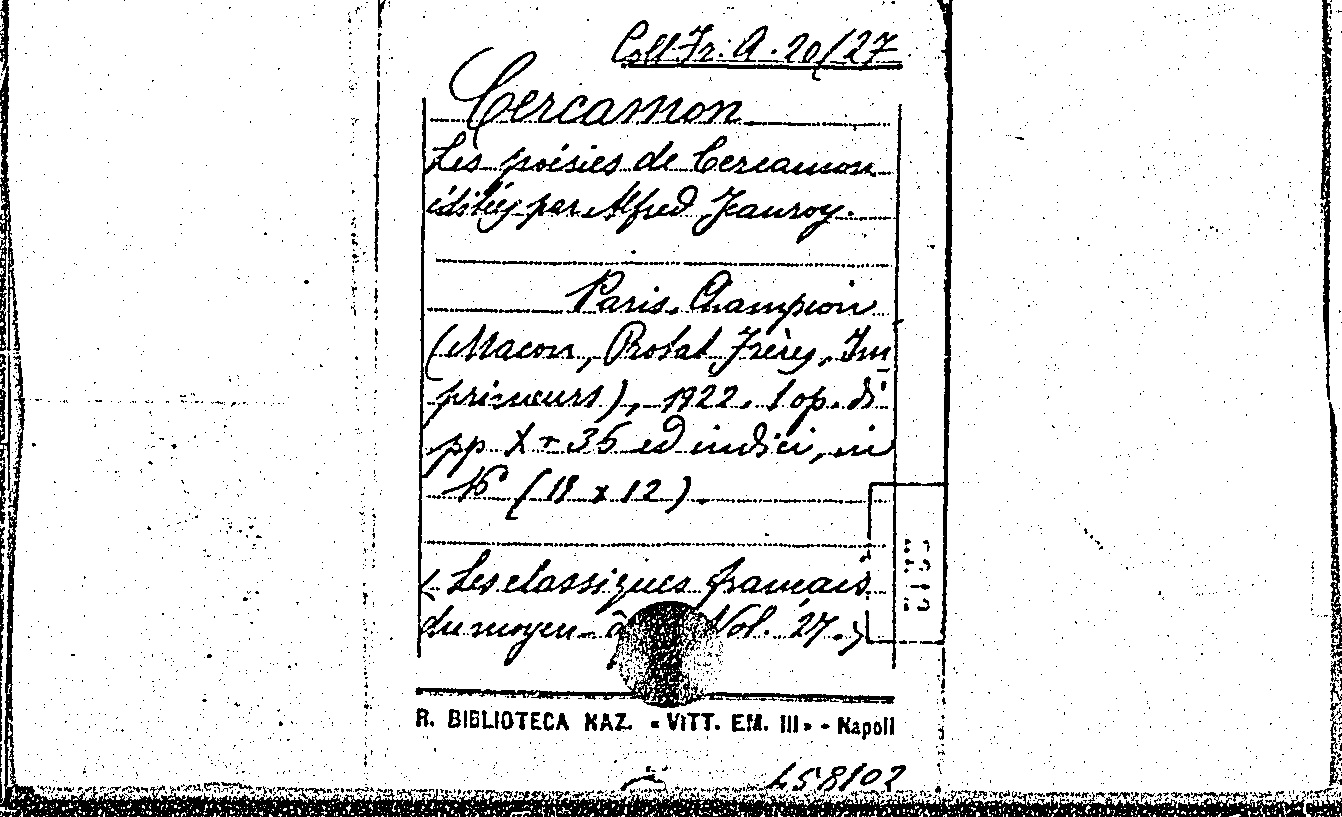 Coll. Fr. A. 20/27
Cercamon
Les poésies de Cercamon
éditées par Alfred Jeanroy.
Paris, Champion
(Macon, Protat Frères, Im
primeurs), 1922. 1 op. di
pp X + 36 ed indici, in
16 (18 x 12).
(Les classiques français
du moyen- â Vol. 27.)
R. BIBLIOTECA NAZ. « VITT. EM. III» - Napoli
458102